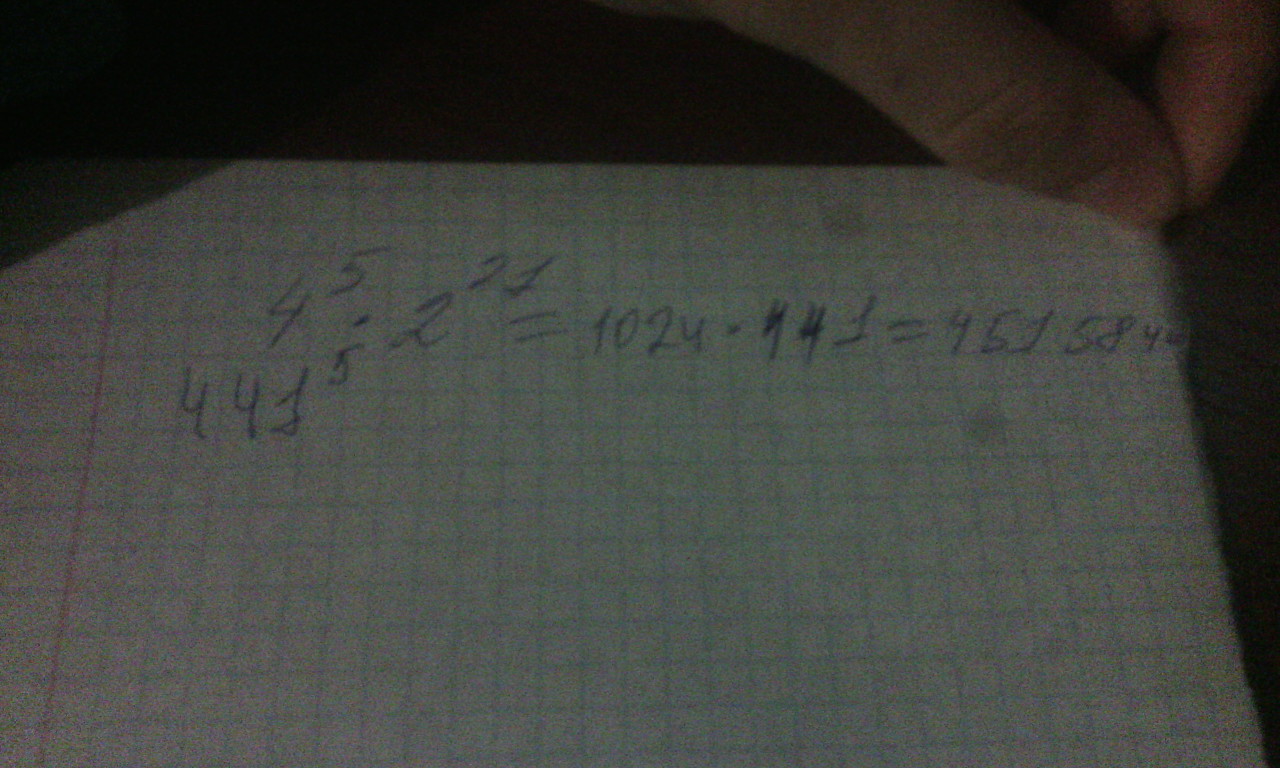 4⁵ · 2²¹ = 1024 · 441 = 451584=
441⁵